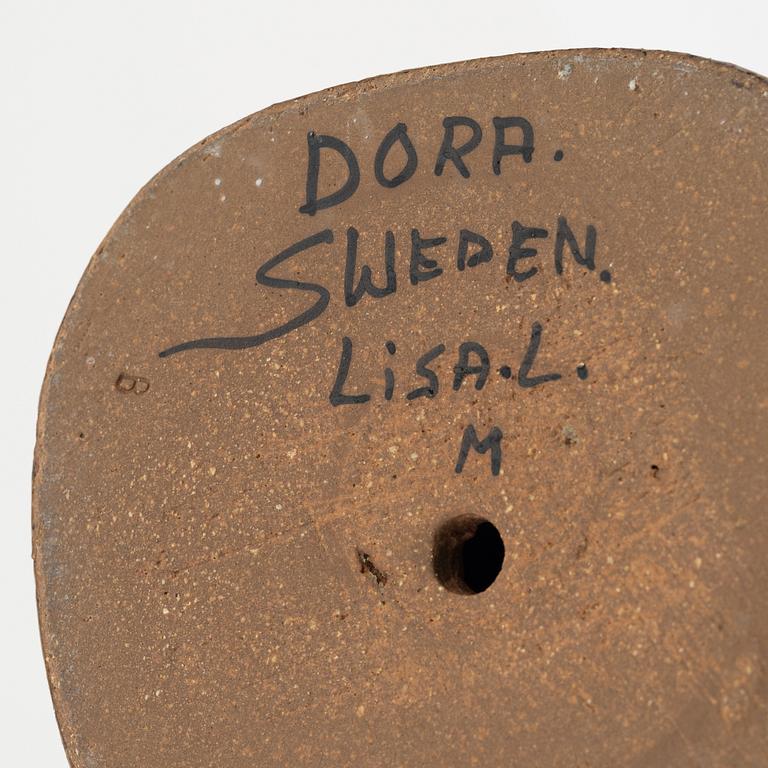 DORA.
SWEDEN.
LiSA.L.
M
B